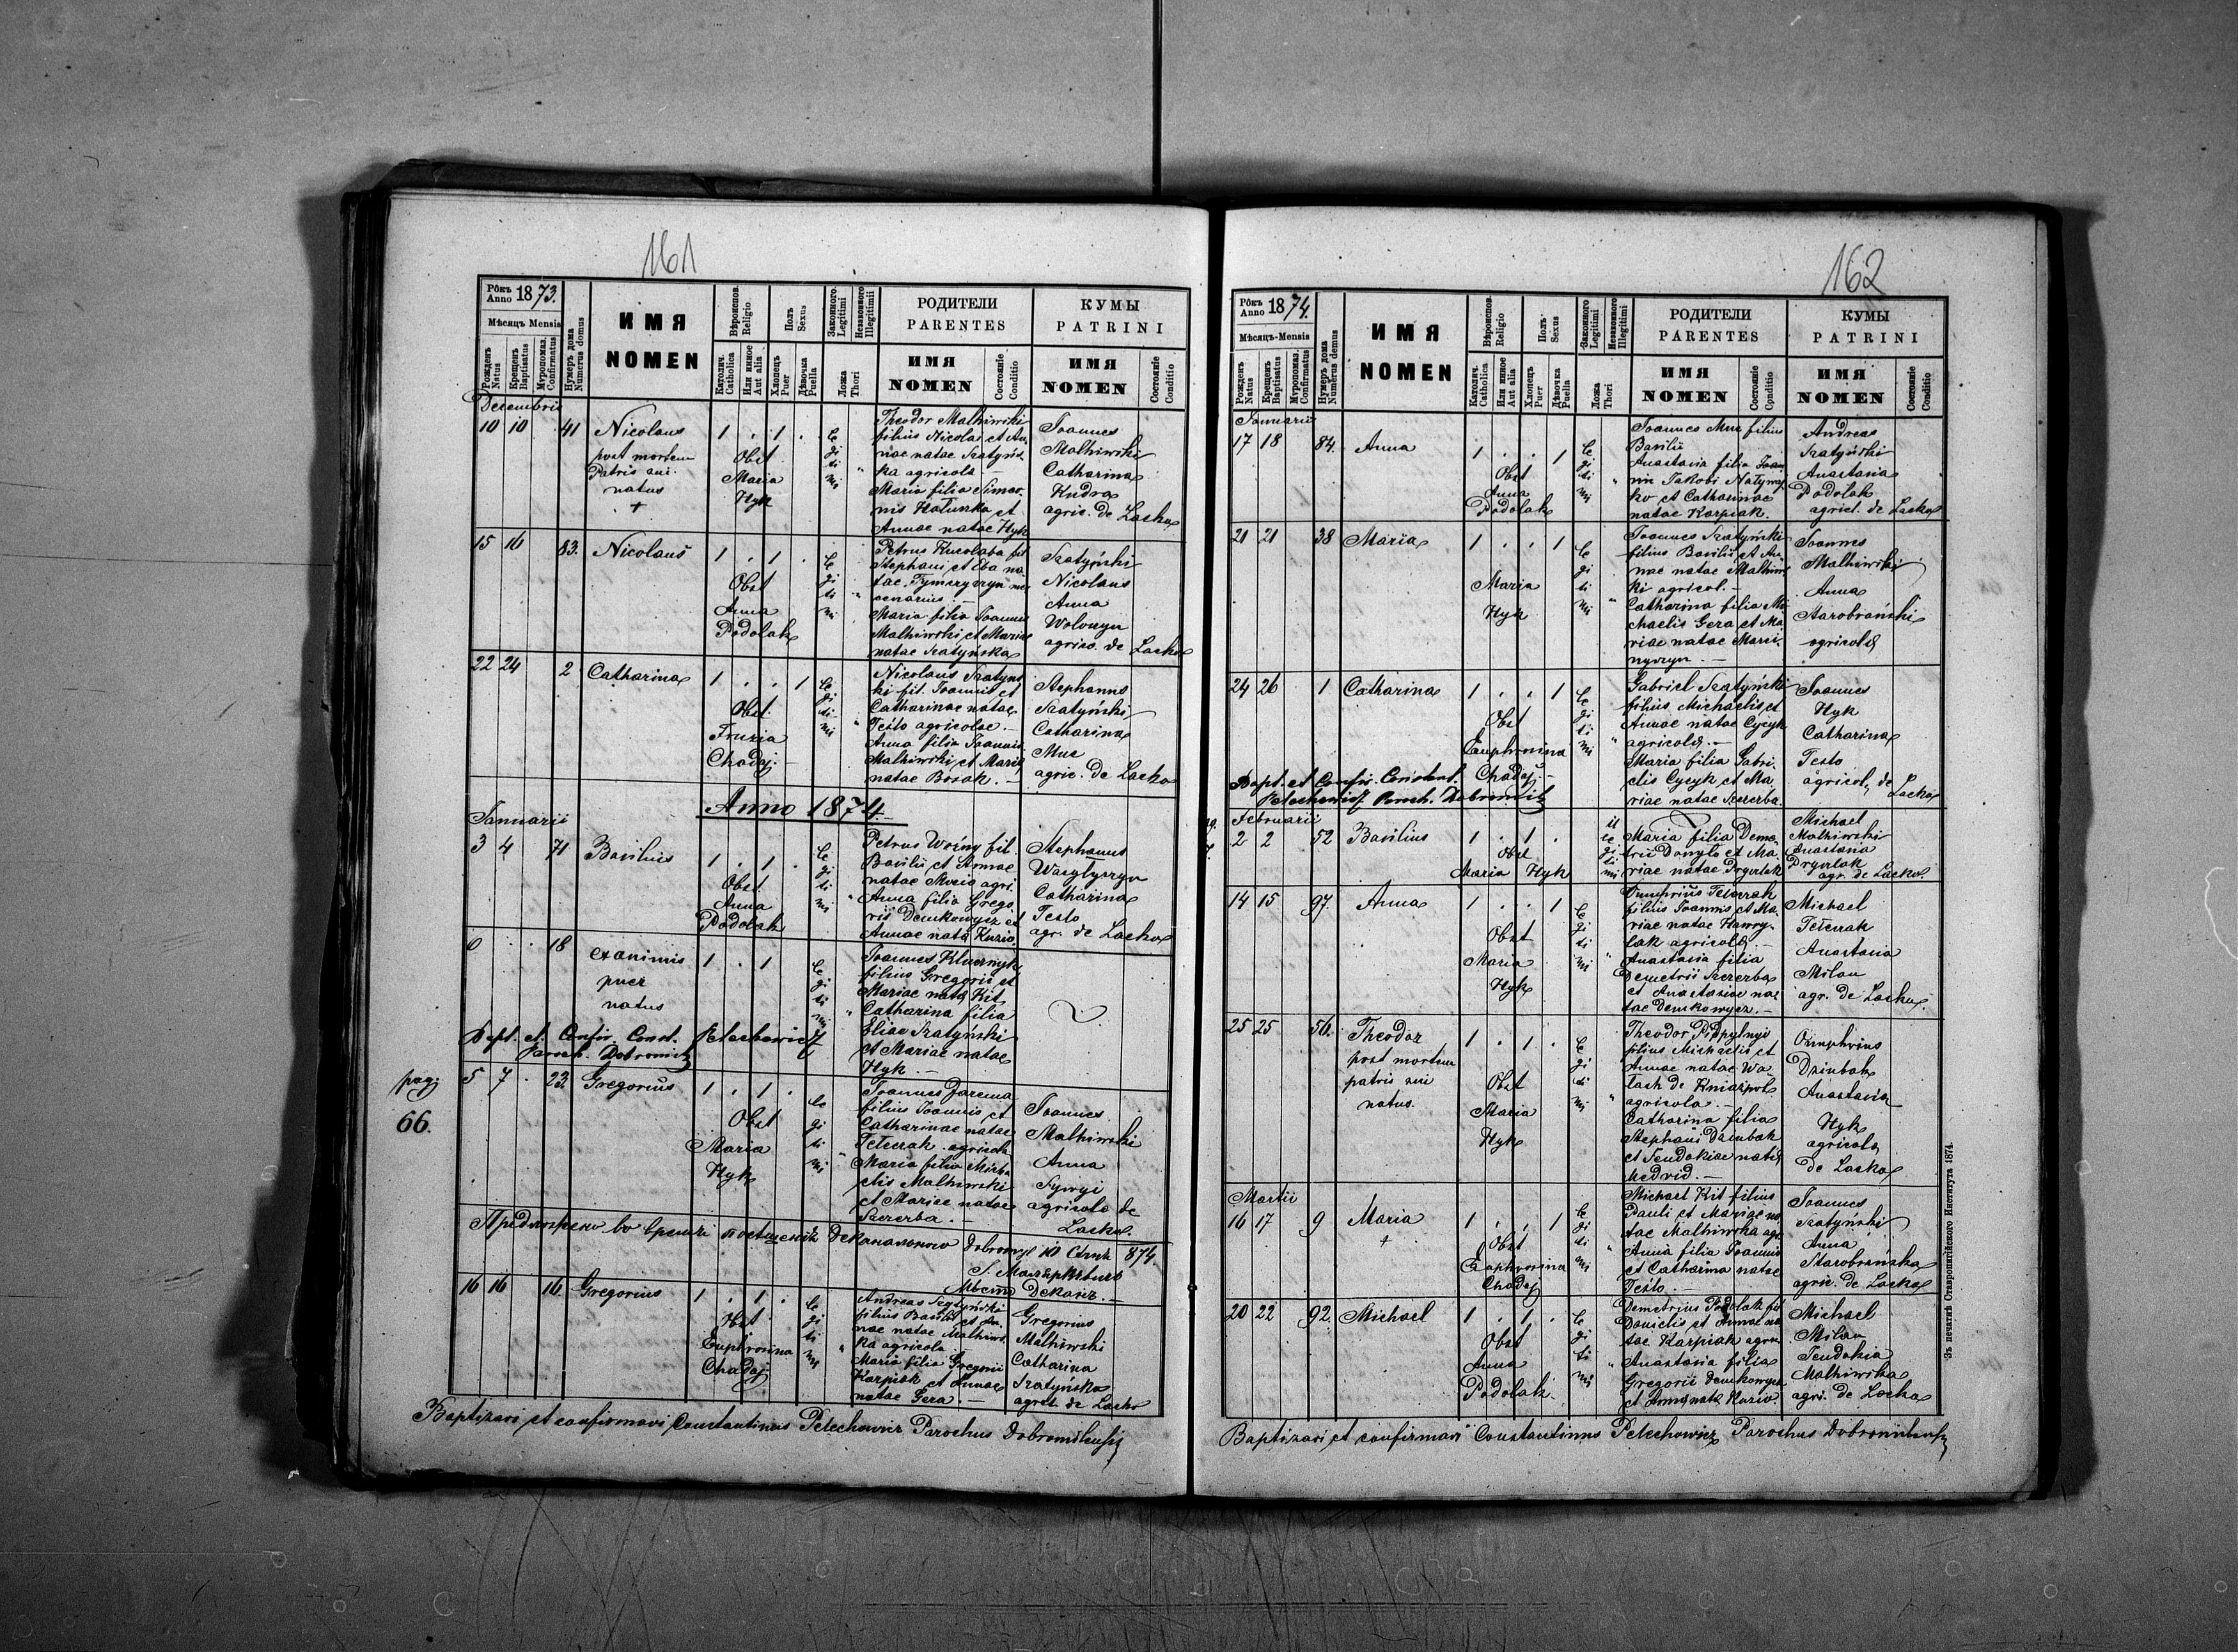 161
Рôкъ Anno 1873.
Мѣсяцъ Mensis
Рожденъ Natus
Крещенъ Baptisatus
Мѵропомаз. Confirmatus
Нумеръ дома Numerus domus
ИМЯ
NOMEN
Вѣроиспов. Religio
Католич. Catholica
Или иное Aut alia
Полъ Sexus
Хлопецъ Puer
Дѣвочка Puella
Законного Legitimi
Незаконного Illegitimi
Ложа Thori
РОДИТЕЛИ
PARENTES
ИМЯ
NOMEN
Состояніе Conditio
КУМЫ
PATRINI
ИМЯ
NOMEN
Состояніе Conditio
Decembris
10 10 41 Nicolaus
post mortem
Patris sui
natus
+
1 . 1 .
Obst
Maria
Hyk
legitimi
Theodor Malhiwski
filius Nicolai et An-
nae natae Szatyńs-
ka agricola –
Maria filia Simeo-
nis Hałuszka et
Annae natae Hyk
Joannes
Malhiwski
Catharina
Kudra
agric. de Lacko
15 16 83. Nicolaus
1 . 1 .
Obst
Anna
Podolak
legitimi
Petrus Huculaba fil
Stephani et Eva na
tae Tymczyszyn mer
cenarius. –
Maria filia Joannis
Malhiwski et Mariae
natae Szatyńska
Szatyński
Nicolaus
Anna
Wolonyn
agrico. de Lacko
22 24 2 Catharina
1 . . 1
Obst.
Fruzia
Chadaj. –
legitimi
Nicolaus Szatyńs
ki fil. Joannis et
Catharinae natae
Testo agricolae. –
Anna filia Joannis
Malhiwski et Maria
natae Borak. –
Stephanus
Szatyński
Catharina
Muc
agric. de Lacko
Anno 1874
Januarii
3 4 71 Basilius
1 . 1 .
Obst.
Anna
Podolak
legitimi
Petrus Woźny fil.
Basilii et Annae
natae Muzio agri.
Anna filia Grego
rii Demkowycz et
Annae natae Kuzio
Stephanus
Wasylyszyn
Catharina
Testo
agr. de Lacko
6 . . 18 exanimis
puer
natus
1 . 1
legitimi
Joannes Klucznyk
filius Gregorii et
Mariae natae Kit
Catharina filia
Eliae Szatyński
et Mariae natae
Hyk. –
Bapt. et Confir. Const. Petechowicz
Paroch. Dobromil.
pag:
66.
5 7 . 23 Gregorius
1 . 1 .
Obst
Maria
Hyk
legitimi
Joannes Jarema
filius Joannis et
Catharinae natae
Teterzak agricola
Maria filia Micha
elis Malhiwski
et Mariae natae
Szczerba. –
Joannes
Malhiwski
Anna
Sywyi
agricola de
Lacko.
Dobromyl 10 874.
16 16 16. Gregorius
1 . 1 .
Obst
Euphrosina
Chadaj
legitimi
Andreas Szatyński
filius Basilii et An-
nae natae Malhiws.
ka agricola –
Maria filia Gregorii
Karpiak et Annae
natae Gera. –
Gregorius
Malhiwski
Catharina
Szatyńska
agricol. de Lacko
Baptizavi et confirmavi Constantinus Petechowicz Parochus Dobromilensis
162
Рôкъ Anno 1874.
Мѣсяцъ-Mensis
Рожденъ Natus
Крещенъ Baptisatus
Мѵропомаз. Confirmatus
Нумеръ дома Numerus domus
ИМЯ
NOMEN
Вѣроиспов. Religio
Католич. Catholica
Или иное Aut alia
Полъ Sexus
Хлопецъ Puer
Дѣвочка Puella
Законного Legitimi
Незаконного Illegitimi
Ложа Thori
РОДИТЕЛИ
PARENTES
ИМЯ
NOMEN
Состояніе Conditio
КУМЫ
PATRINI
ИМЯ
NOMEN
Состояніе Conditio
Januarii
17 18 84. Anna
1 . . 1
Obst
Anna
Podolak
legitimi
Joannes Muc filius
Basilii
Anastasia filia Joan
nis Jakobi Natyna
ko et Catharinae
natae Karpiak.
Andreas
Szatyński
Anastasia
Podolak
agricl. de Lacko
21 21 38 Maria
1 . . 1
Maria
Hyk
legitimi
Joannes Szatyński
filius Basilii et An-
nae natae Malhiws
ki agricol. –
Catharina filia Mi
chaelis Gera et Ma
riae natae Marci-
nyszyn. –
Joannes
Malhiwski
Anna
Starobrański
agricola
24 26 1 Catharina
1 . . 1
Obst
Euphrosina
Chadaj. –
legitimi
Gabriel Szatyński
filius Michaelis et
Annae natae Cycyk
agricola. –
Maria filia Gabri-
elis Cycyk et Ma-
riae natae Szczerba.
Joannes
Hyk
Catharina
Testo
agricol. de Lacko
Bapt. et Confir. Constant.
Petechowicz Paroch. Dobromil
Februarii
2 2 52 Basilius
1 . 1 .
Obst
Maria Hyk
illegitimi
Maria filia Deme
trii Danylo et Ma-
riae natae Pryszlak
Michael
Malhiwski
Anastasia
Pryszlak
agr. de Lacko.
14 15 97. Anna
1 . . 1
Obst
Maria
Hyk
legitimi
Onuphrius Teterzak
filius Joannis et Ma-
riae natae Hawry-
lak agricola –
Anastasia filia
Demetrii Szczerba
et Anastasiae na-
tae Demkowycz. –
Michael
Teterzak
Anastasia
Milan
agr. de Lacko.
25 25 56. Theodor
post mortem
patris sui
natus.
1 . 1 .
Obst
Maria
Hyk
legitimi
Theodor Pippylnyi
filius Michaelis et
Annae natae Wa-
tash de Kniazpol
agricola. –
Catharina filia
Stephani Dziubak
et Teudokiae natae
Medvid. –
Onuphrius
Dziubak
Anastasia
Hyk
agricola
de Lacko
Martii
16 17 9 Maria
+
1 . . 1
Obst
Euphrosina
Chadaj
legitimi
Michael Kit filius
Pauli et Mariae na
tae Malhiwska agr.
Anna filia Joannis
et Catharina natae
Testo. –
Joannes
Szatyński
Anna
Starobrańska
agric. de Lacko
20 22 92 Michael
1 . 1 .
Obst
Anna
Podolak.
legitimi
Demetrius Podolak fil
Danielis et Annae na
tae Karpiak agric.
Anastasia filia
Gregorii Demkowycz
et Annae natae Kuzio.
Michael
Milan
Teudokia
Malhiwska
agri. de Lacko
Baptizavi et confirmavi Constantinus Petechowicz Parochus Dobromilensis
Зъ печатнѣ Ставропигійского Института 1874.